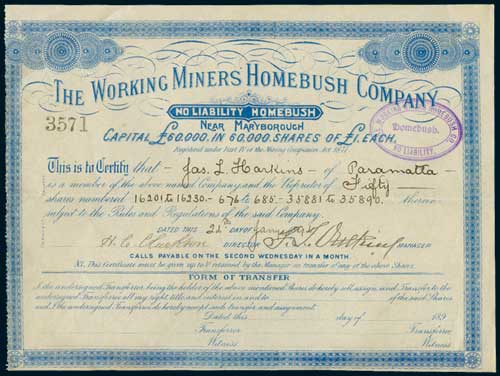 THE WORKING MINERS HOMEBUSH COMPANY
NO LIABILITY HOMEBUSH
NEAR MARYBOROUGH
3571
CAPITAL £60,000, IN 60,000 SHARES OF £1. EACH.
Registered under Part IV of the Mining Companies Act 1871
WORKING MINERS HOMEBUSH CO.
Homebush.
NO LIABILITY.
This is to Certify that Jas. L. Harkins of Paramatta
is a member of the above named Company and the Proprietor of Fifty
shares numbered 16201 to 16230 - 676 to 685 - 35881 to 35890. therein
subject to the Rules and Regulations of the said Company.
DATED THIS 24th January
DIRECTOR MANAGER
CALLS PAYABLE ON THE SECOND WEDNESDAY IN A MONTH.
This Certificate must be given up & retained by the Manager on transfer of any of the above Shares.
FORM OF TRANSFER
I the undersigned Transferror, being the holder of the above mentioned Shares do hereby sell, assign, and Transfer to the
undersigned Transferree all my right, title, and interest in and to of the said Shares
and I, the undersigned Transferree do hereby accept such transfer and assignment.
Dated this day of 189
Transferror Transferree
Witness Witness